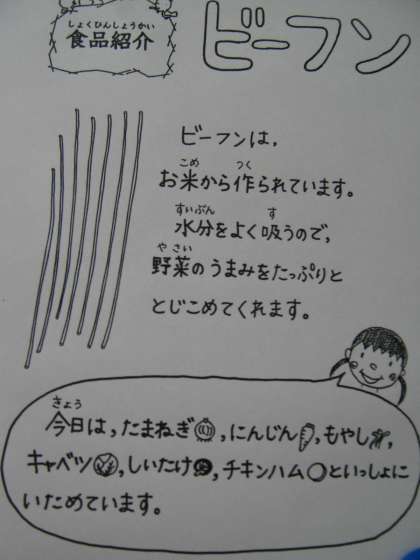 しょくひんしょうかい
食品紹介
ビーフン
ビーフンは,
こめ つく
お米から作られています。
すいぶん す
水分をよく吸うので,
やさい
野菜のうまみをたっぷりと
とじこめてくれます。
きょう
今日は,たまねぎ,にんじん,もやし,
キャベツ,しいたけ,チキンハムといっしょに
いためています。